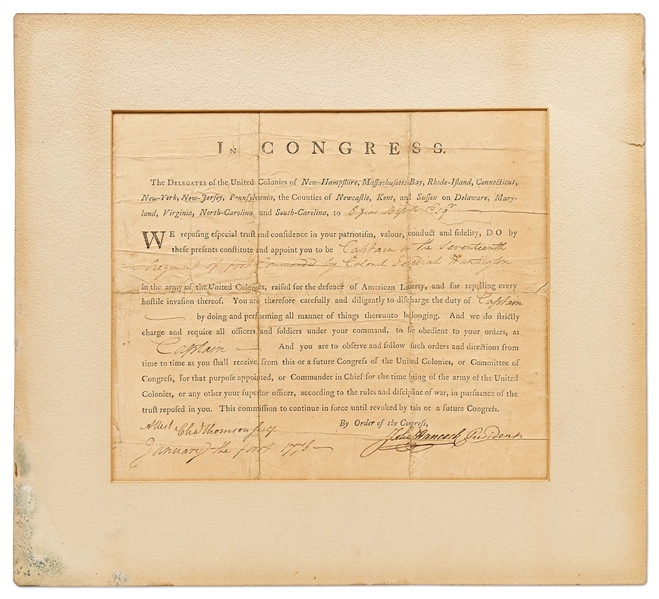 IN CONGRESS.
The DELEGATES of the United Colonies of New-Hampshire, Massachusetts Bay, Rhode-Island, Connecticut,
New-York, New-Jersey, Pennsylvania, the Counties of Newcastle, Kent, and Sussex on Delaware, Mary-
land, Virginia, North-Carolina and South-Carolina, to Ozias Bissell Esqr
WE reposing especial trust and confidence in your patriotism, valour, conduct and fidelity, DO by
these presents constitute and appoint you to be Captain in the Seventeenth
Regiment of foot commanded by Colonel Jedidiah Huntington
in the army of the United Colonies, raised for the defence of American Liberty, and for repelling every
hostile invasion thereof. You are therefore carefully and diligently to discharge the duty of Captain
by doing and performing all manner of things thereunto belonging. And we do strictly
charge and require all officers and soldiers under your command, to be obedient to your orders, as
Captain And you are to observe and follow such orders and directions from
time to time as you shall receive from this or a future Congress of the United Colonies, or Committee of
Congress, for that purpose appointed, or Commander in Chief for the time being of the army of the United
Colonies, or any other your superior officer, according to the rules and discipline of war, in pursuance of the
trust reposed in you. This commission to continue in force until revoked by this or a future Congress.
By Order of the Congress,
Attest Cha Thomson Secy John Hancock President
January the first 1776